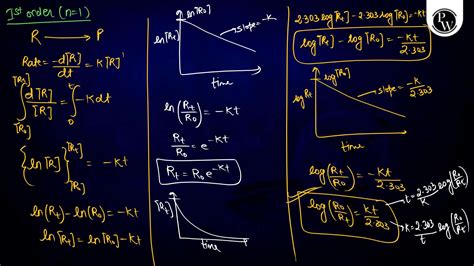 Ist order (n=1)
R → P
Rate = -d[R]/dt = K[R]¹
∫ d[R]/[R] = ∫ -Kdt
[R₀]
[Rt]
0
t
{ln[R]} [Rt] [R₀] = -Kt
ln(Rt) - ln(R₀) = -Kt
ln[Rt] = ln[R₀] - Kt
ln[R₀]
slope = -K
ln[Rt]
time
ln(Rt/R₀) = -Kt
Rt/R₀ = e^-Kt
Rt = R₀e^-Kt
[Rt]
time
2.303 log[Rt] - 2.303 log[R₀] = -Kt
log[Rt] - log[R₀] = -Kt/2.303
log[R₀]
slope = -K/2.303
log Rt
time
log(Rt/R₀) = -Kt/2.303
log(R₀/Rt) = Kt/2.303
t = 2.303/K log(R₀/Rt)
K = 2.303/t log(R₀/Rt)
PW